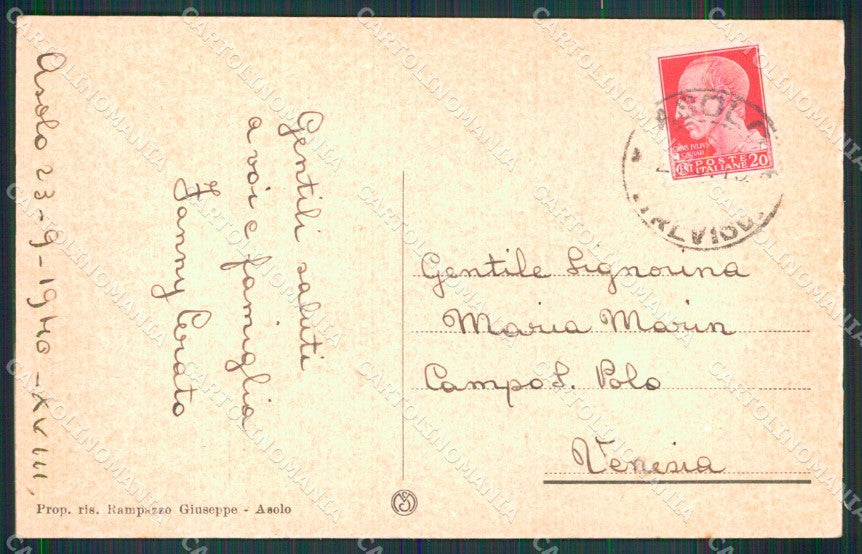 Asolo 23-9-1940-XVIII.
Gentili saluti
a voi e famiglia
Fanny Cerato
Gentile Signorina
Maria Marin
Campo S. Polo
Venesia
ASOLO
TREVISO
POSTE
ITALIANE
CENT 20
Prop. ris. Rampazzo Giuseppe - Asolo
CARTOLINOMANIA